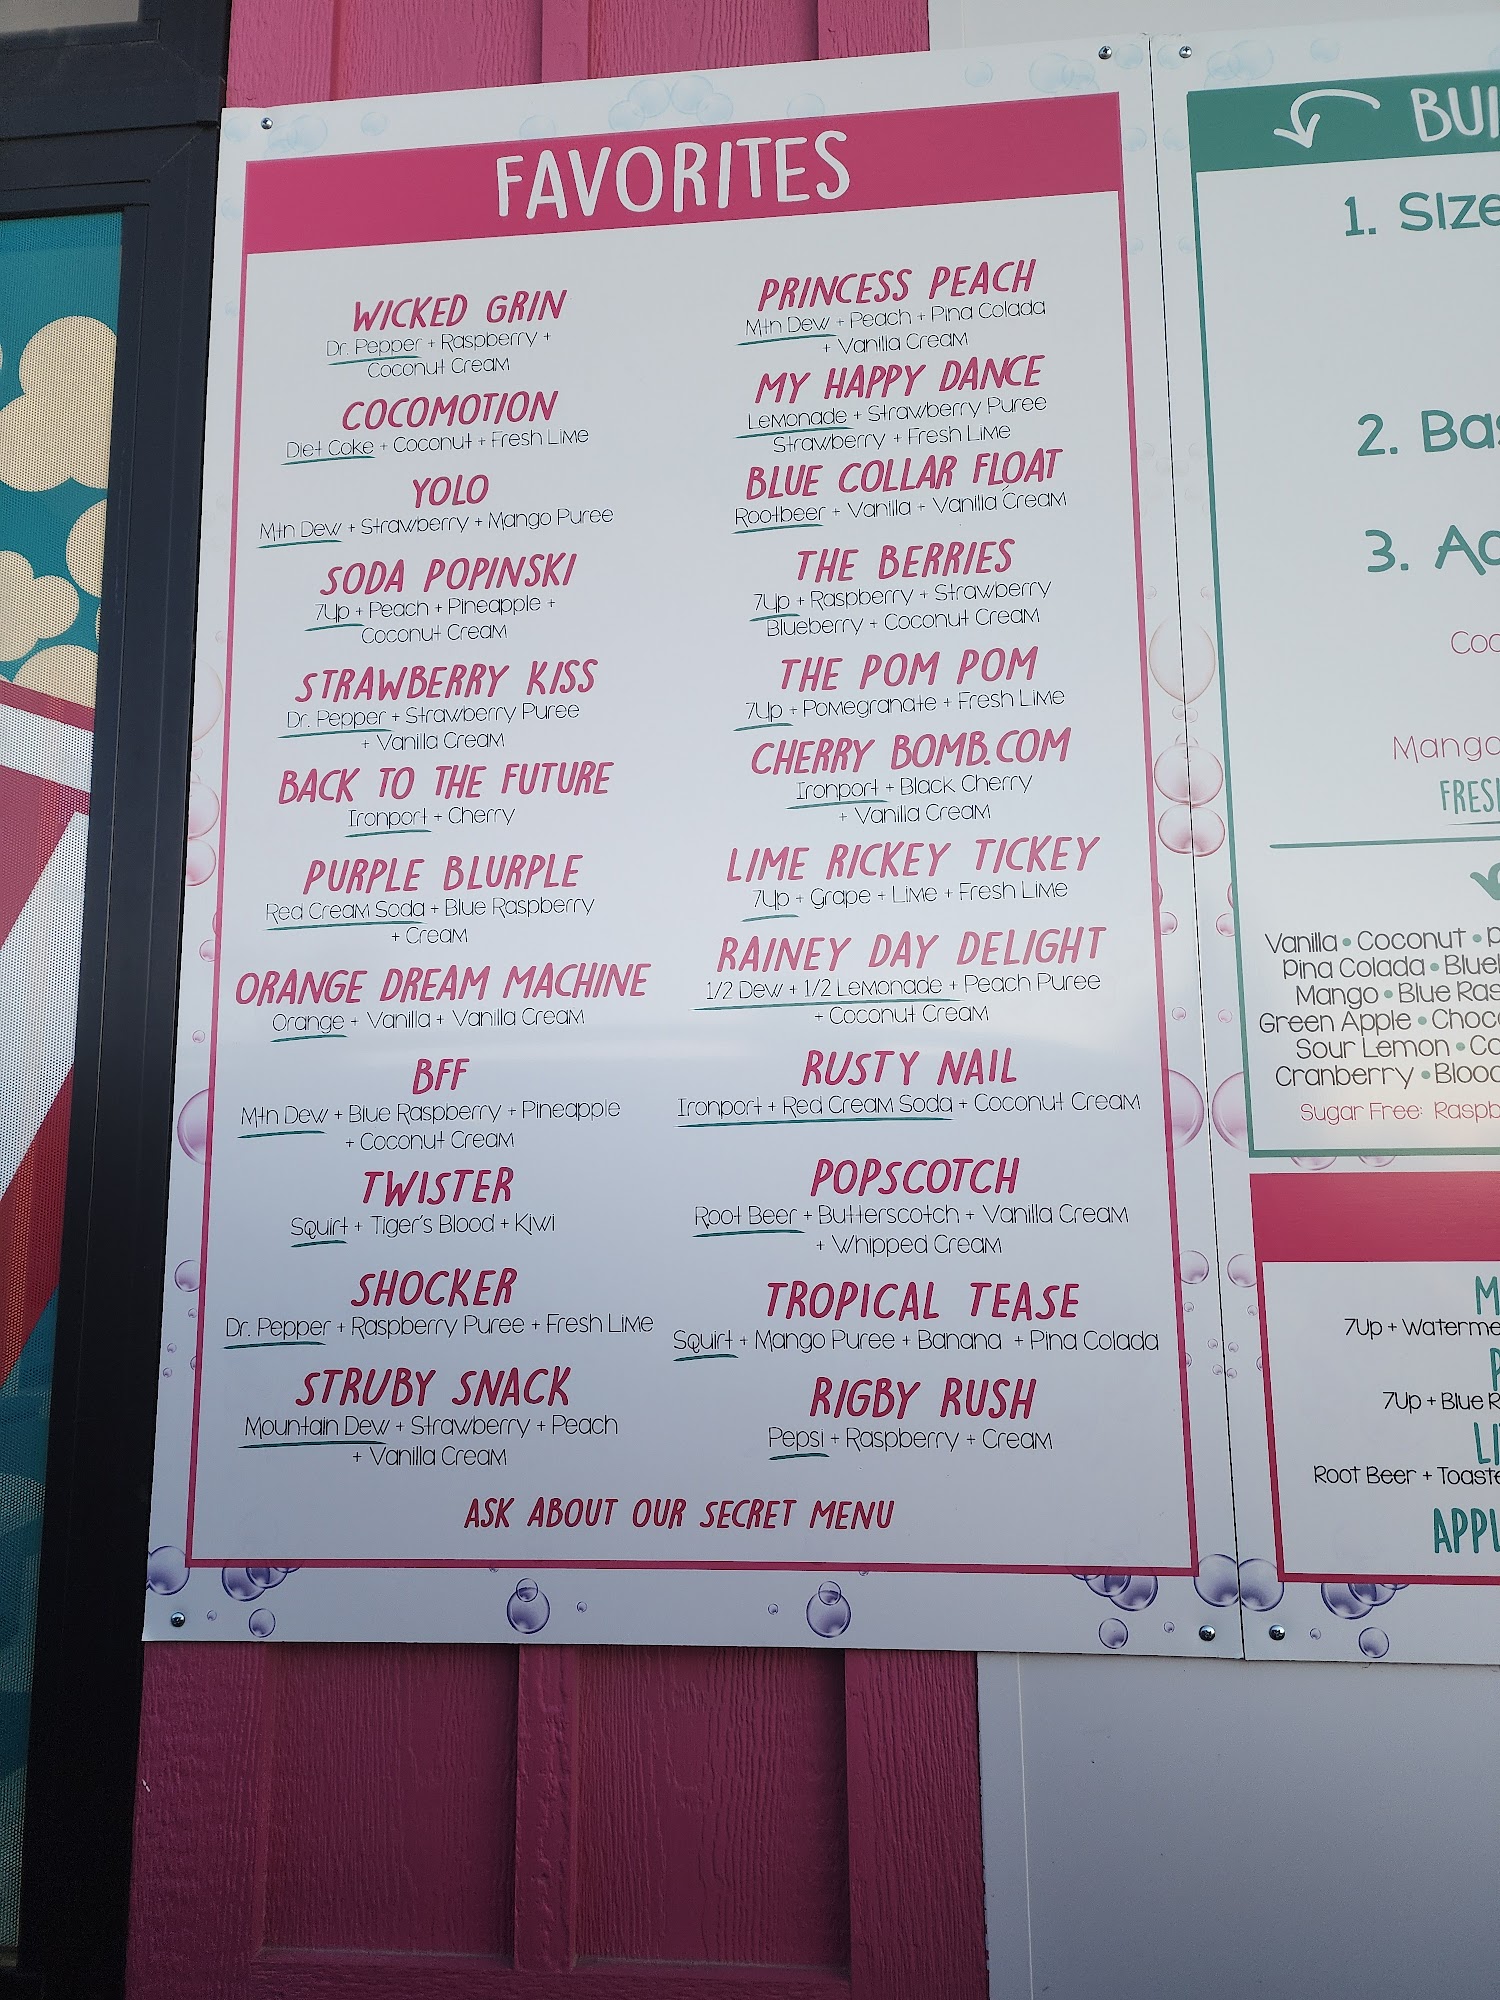 FAVORITES
WICKED GRIN
Dr. Pepper + Raspberry +
Coconut Cream
COCOMOTION
Diet Coke + Coconut + Fresh Lime
YOLO
Mtn Dew + Strawberry + Mango Puree
SODA POPINSKI
7Up + Peach + Pineapple +
Coconut Cream
STRAWBERRY KISS
Dr. Pepper + Strawberry Puree
+ Vanilla Cream
BACK TO THE FUTURE
Ironport + Cherry
PURPLE BLURPLE
Red Cream Soda + Blue Raspberry
+ Cream
ORANGE DREAM MACHINE
Orange + Vanilla + Vanilla Cream
BFF
Mtn Dew + Blue Raspberry + Pineapple
+ Coconut Cream
TWISTER
Squirt + Tiger's Blood + Kiwi
SHOCKER
Dr. Pepper + Raspberry Puree + Fresh Lime
STRUBY SNACK
Mountain Dew + Strawberry + Peach
+ Vanilla Cream
PRINCESS PEACH
Mtn Dew + Peach + Pina Colada
+ Vanilla Cream
MY HAPPY DANCE
Lemonade + Strawberry Puree
Strawberry + Fresh Lime
BLUE COLLAR FLOAT
Rootbeer + Vanilla + Vanilla Cream
THE BERRIES
7Up + Raspberry + Strawberry
Blueberry + Coconut Cream
THE POM POM
7Up + Pomegranate + Fresh Lime
CHERRY BOMB.COM
Ironport + Black Cherry
+ Vanilla Cream
LIME RICKEY TICKEY
7Up + Grape + Lime + Fresh Lime
RAINEY DAY DELIGHT
1/2 Dew + 1/2 Lemonade + Peach Puree
+ Coconut Cream
RUSTY NAIL
Ironport + Red Cream Soda + Coconut Cream
POPSCOTCH
Root Beer + Butterscotch + Vanilla Cream
+ Whipped Cream
TROPICAL TEASE
Squirt + Mango Puree + Banana + Pina Colada
RIGBY RUSH
Pepsi + Raspberry + Cream
ASK ABOUT OUR SECRET MENU
1. Size
2.
3.
Vanilla • Coconut •
Pina Colada •
Mango • Blue
Green Apple •
Sour Lemon •
Cranberry •
Sugar Free:
7Up +
7Up + Blue
Root Beer +